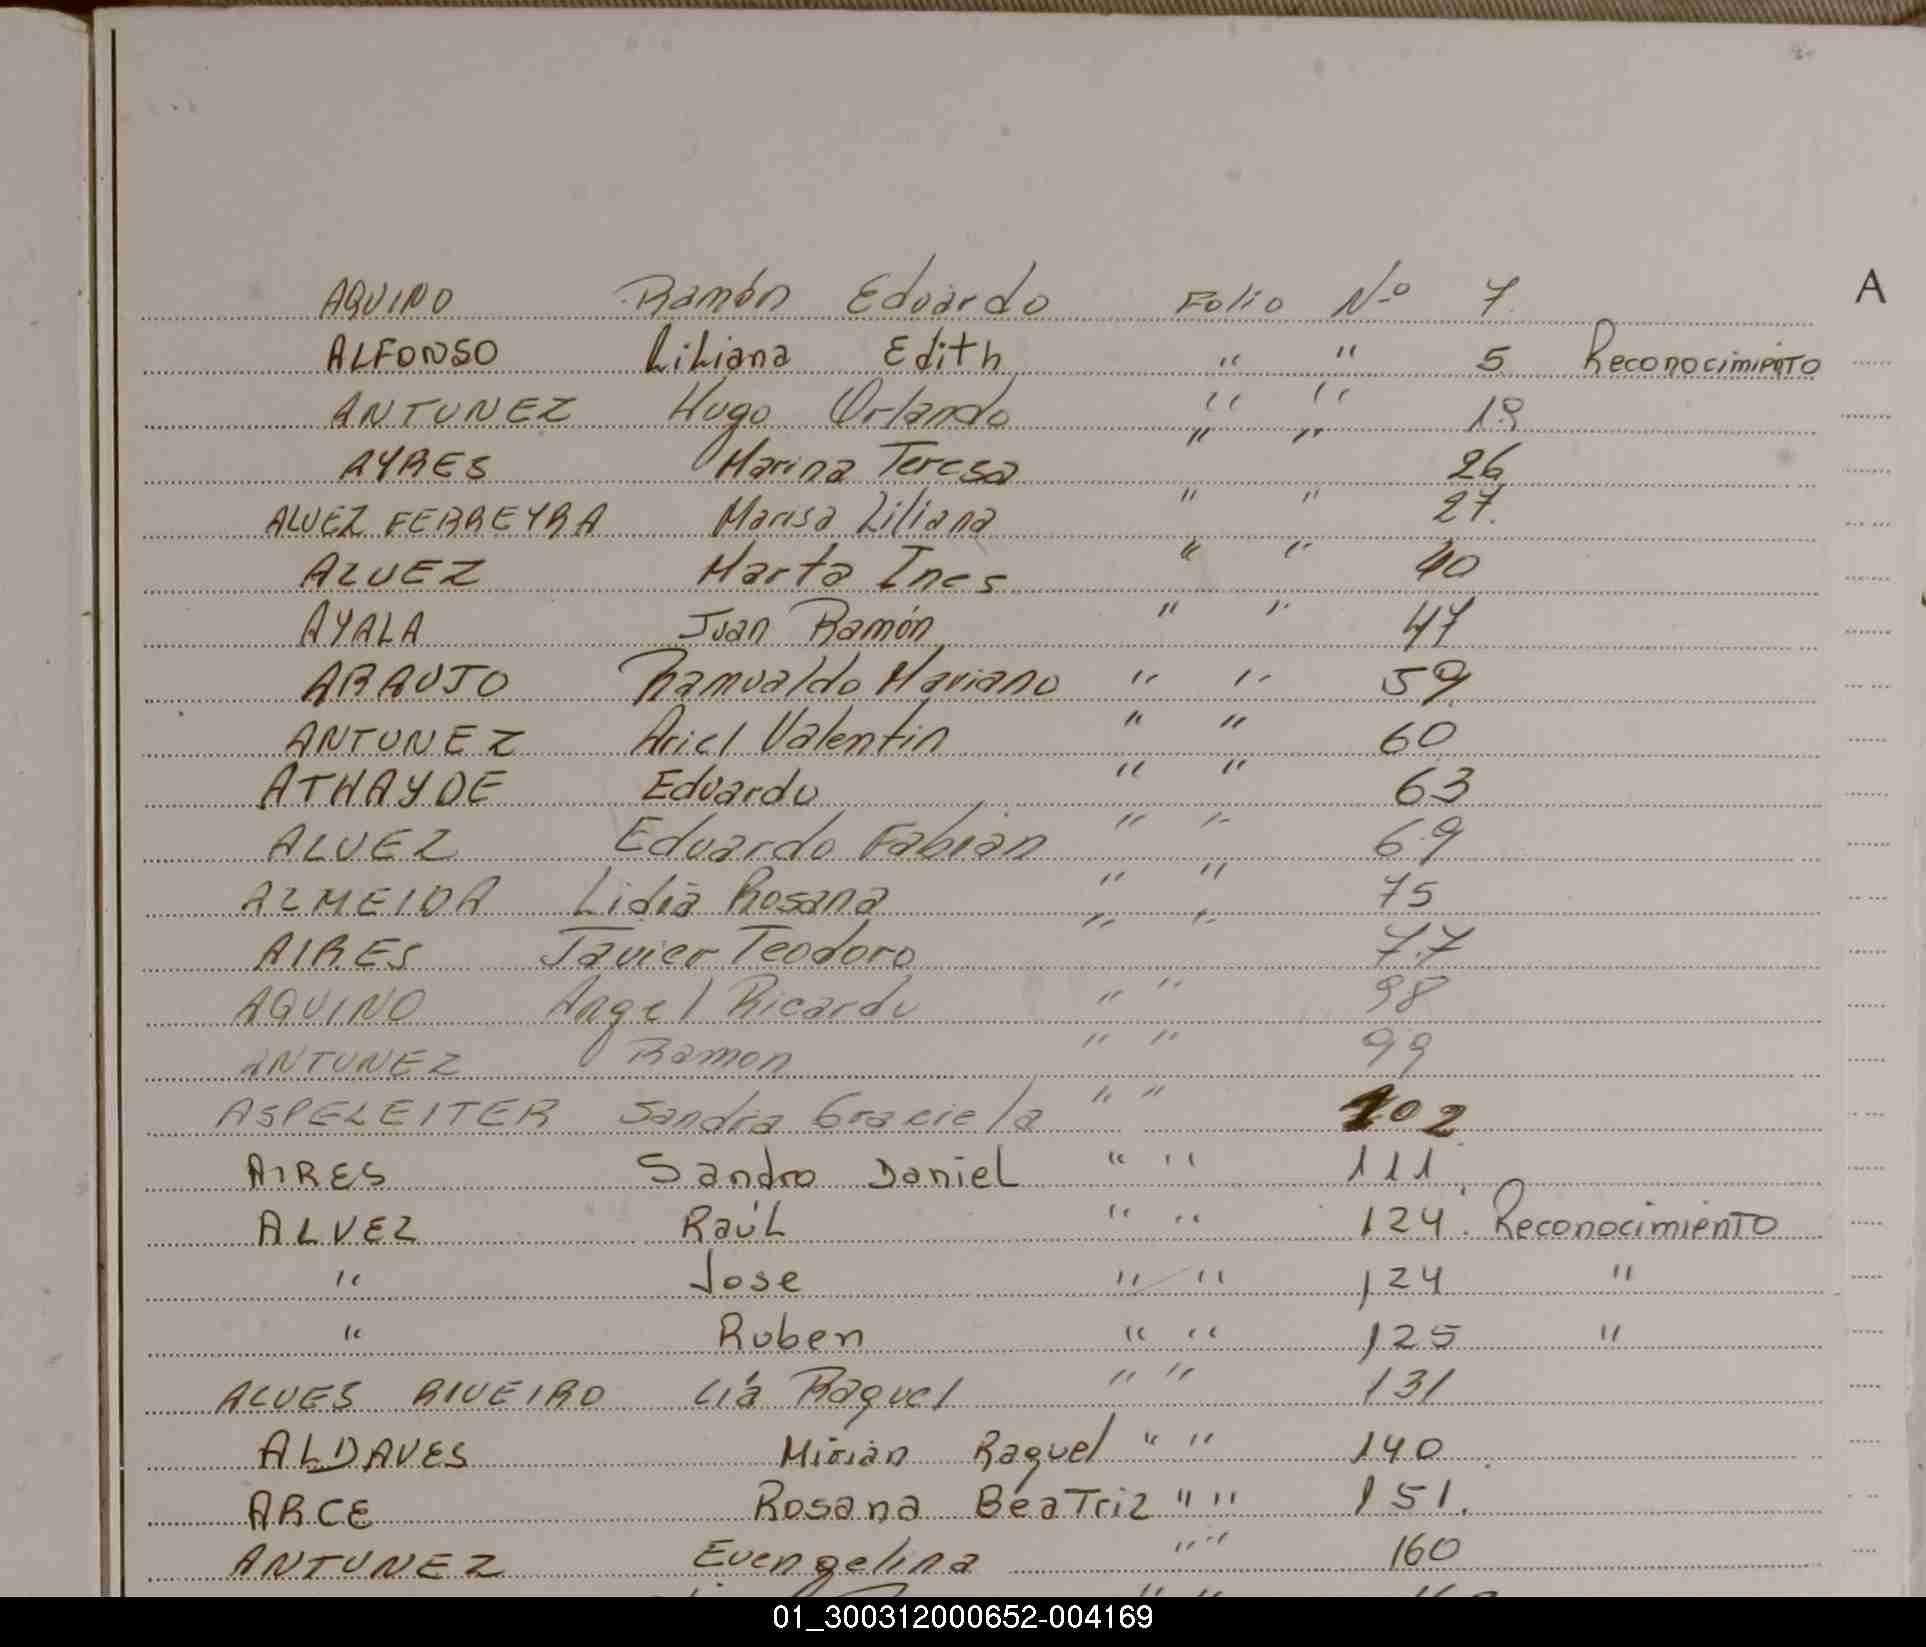 A
AQUINO Ramón Eduardo Folio Nº 7
ALFONSO Liliana Edith " " 5 Reconocimiento
ANTUNEZ Hugo Orlando " " 18
AYRES Marina Teresa " " 26
ALVEZ FERREYRA Marisa Liliana " " 27
ALVEZ Marta Ines " " 40
AYALA Juan Ramón " " 47
ARAUJO Ramualdo Mariano " " 59
ANTUNEZ Ariel Valentin " " 60
ATHAYDE Eduardo " " 63
ALVEZ Eduardo Fabián " " 69
ALMEIDA Lidia Rosana " " 75
AIRES Javier Teodoro " " 77
AQUINO Angel Ricardo " " 98
ANTUNEZ Ramon " " 99
ASPELEITER Sandra Graciela " " 102
AIRES Sandro Daniel " " 111
ALVEZ Raúl " " 124 Reconocimiento
" Jose " " 124 "
" Ruben " " 125 "
ALVES RIVEIRO Lia Raquel " " 131
ALDAVES Mirian Raquel " " 140
ARCE Rosana BeaTriz " " 151.
ANTUNEZ Evengelina " " 160
01_300312000652-004169